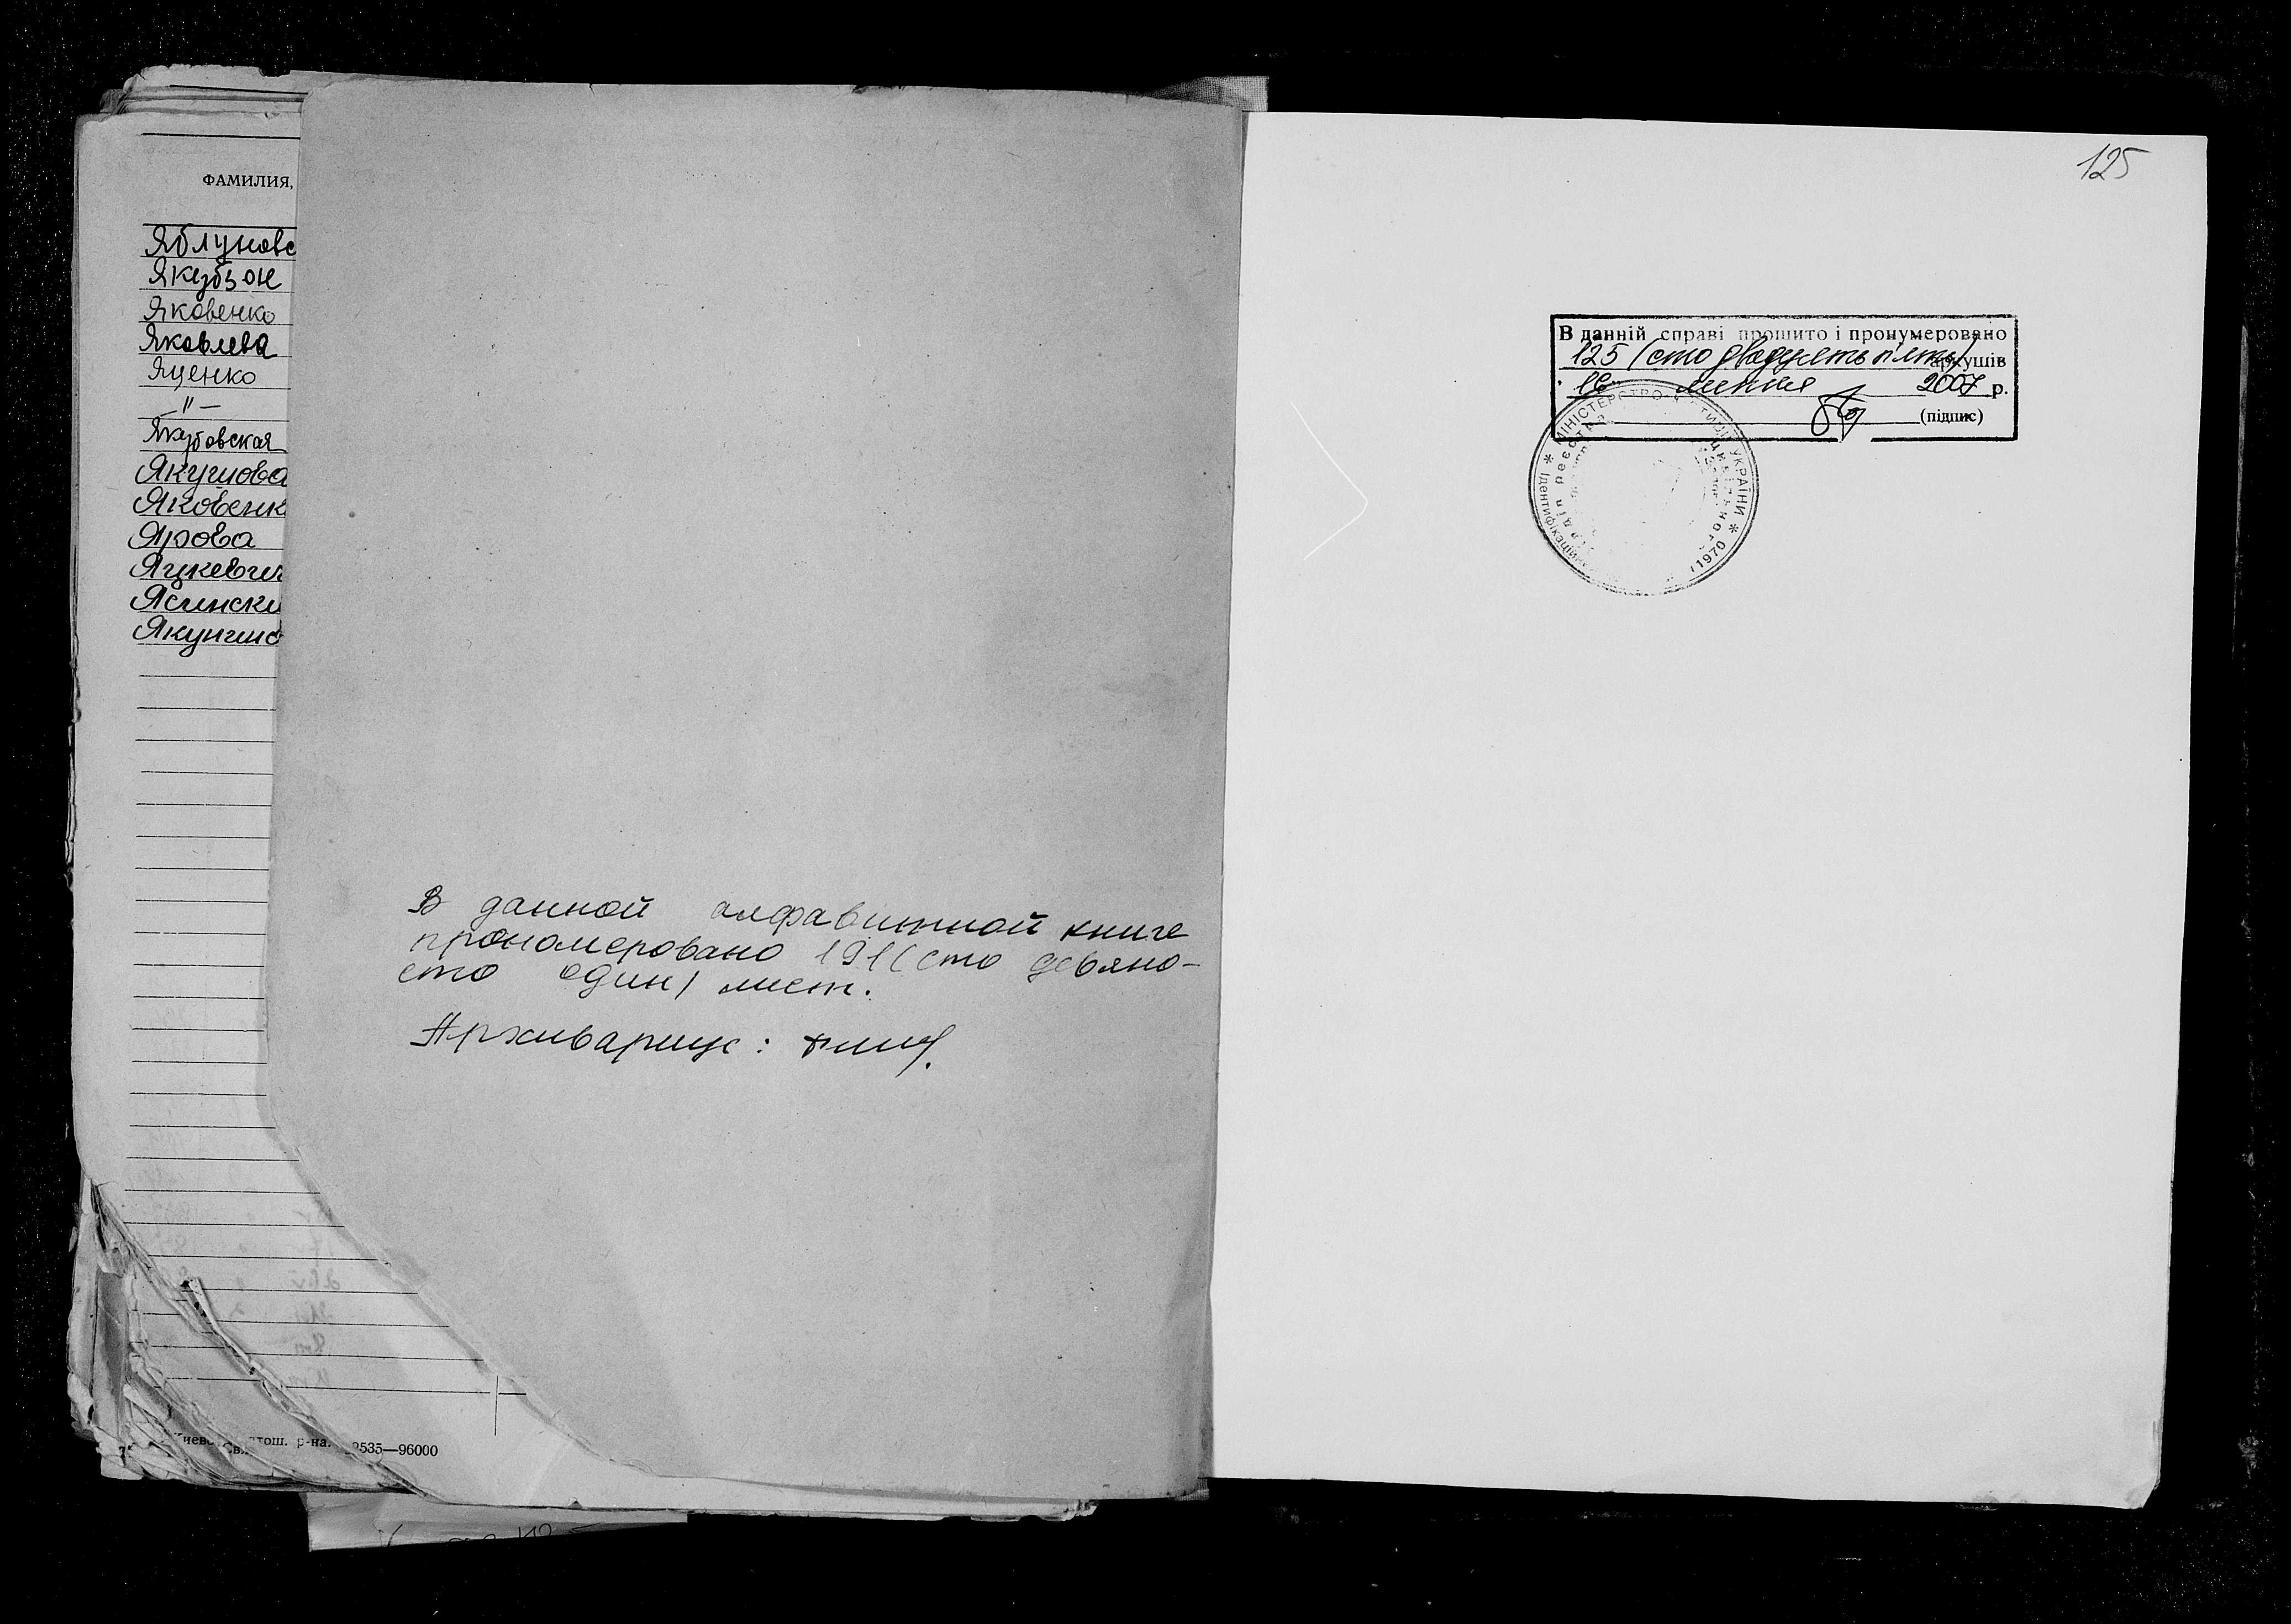 ФАМИЛИЯ,
Яблуновс
Якубзон
Яковенко
Яковлева
Яценко
— " —
Якубовская
Якушова
Яковенк
Ярова
Яцкевич
Ясински
Якунино
р-на. 2535—96000
В данной алфавитной книге
прономеровано 191 (сто девяно-
сто один) лист.
Архивариус:
125
В данній справі прошито і пронумеровано
125 (сто двадцять п'ять) аркушів
16 липня 2007 р.
(підпис)
МІНІСТЕРСТВО ЮСТИЦІЇ УКРАЇНИ